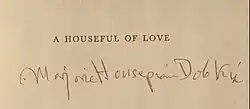 A HOUSEFUL OF LOVE
Marjorie Housepian Dobkin